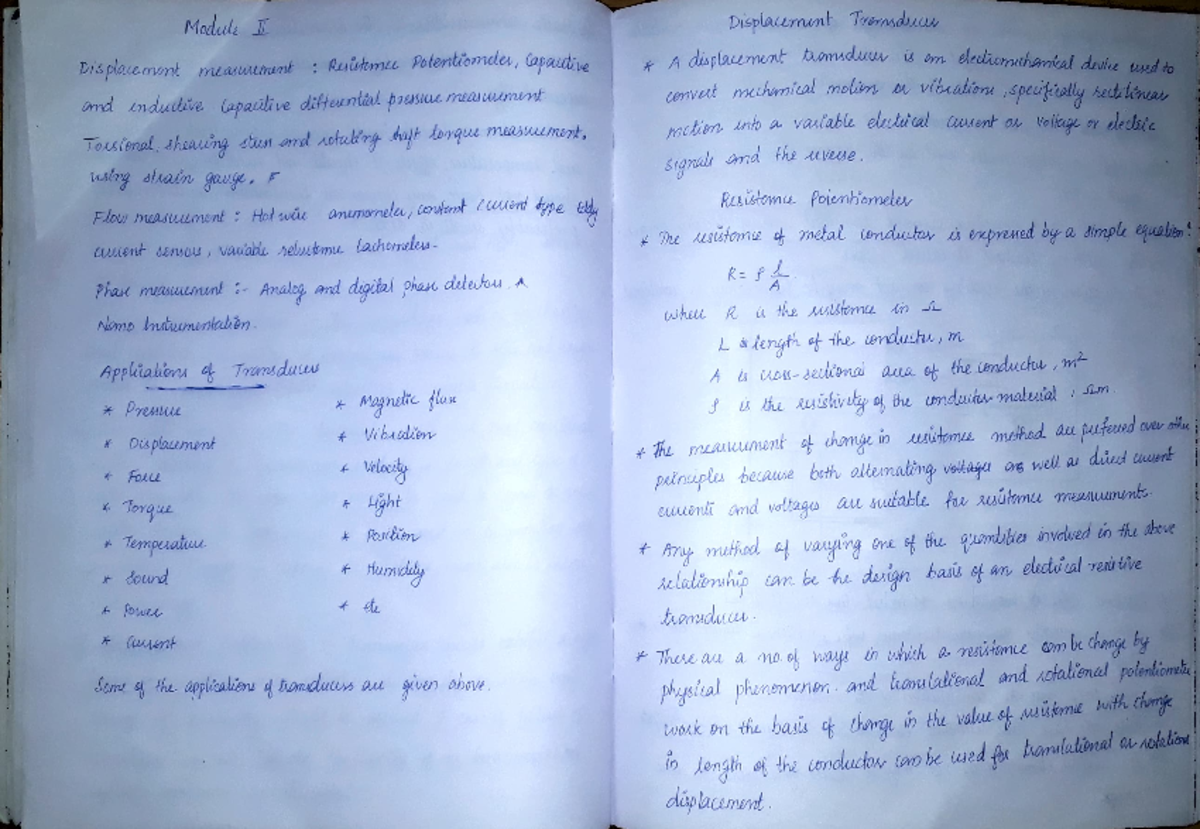 Module II
Displacement measurement : Resistance Potentiometer, Capacitive
and inductive Capacitive differential pressure measurement
Torsional, shearing stress and rotating shaft torque measurement.
using strain gauge.
Flow measurement : Hot wire anemometer, constant current type Eddy
current sensors, variable reluctance tachometers.
Phase measurement :- Analog and digital phase detectors.
Nano Instrumentation.
Applications of Transducers
* Pressure
* Displacement
* Force
* Torque
* Temperature
* Sound
* Power
* Current
* Magnetic flux
* Vibration
* Velocity
* Light
* Position
* Humidity
* etc
Some of the applications of transducers are given above.
Displacement Transducer
* A displacement transducer is an electromechanical device used to
convert mechanical motion or vibrations, specifically rectilinear
motion into a variable electrical current or voltage or electric
signals and the reverse.
Resistance Potentiometer
* The resistance of metal conductor is expressed by a simple equation:
R = ρ l/A
where R is the resistance in Ω
L is length of the conductor, m
A is cross-sectional area of the conductor, m²
ρ is the resistivity of the conductor material, Ωm
* The measurement of change in resistance method are preferred over other
principles because both alternating voltages as well as direct current
currents and voltages are suitable for resistance measurements.
* Any method of varying one of the quantities involved in the above
relationship can be the design basis of an electrical resistive
transducer.
* There are a no. of ways in which a resistance can be change by
physical phenomenon. and translational and rotational potentiometer
work on the basis of change in the value of resistance with change
in length of the conductor can be used for translational or rotational
displacement.